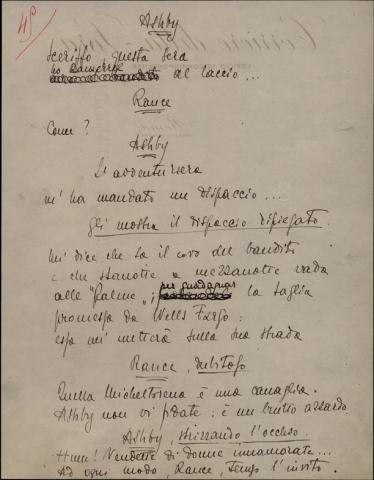 48
Ashby
Sceriffo questa sera
ho Ramerrez al laccio...
Rance
Come?
Ashby
L'avventuriera
m'ha mandato un dispaccio...
gli mostra il dispaccio ripiegato.
Mi dice che sa il covo del bandito
e che stanotte a mezzanotte vada
alle "Palme"; per guadagnar la taglia
promessa da Wells Fargo:
essa mi metterà sulla sua strada
Rance, dubitoso
Quella Micheltorena è una canaglia.
Ashby non vi fidate: è un brutto azzardo
Ashby, strizzando l'occhio.
Hum! Vendette di donne innamorate...
Ad ogni modo, Rance, tengo l'invito.